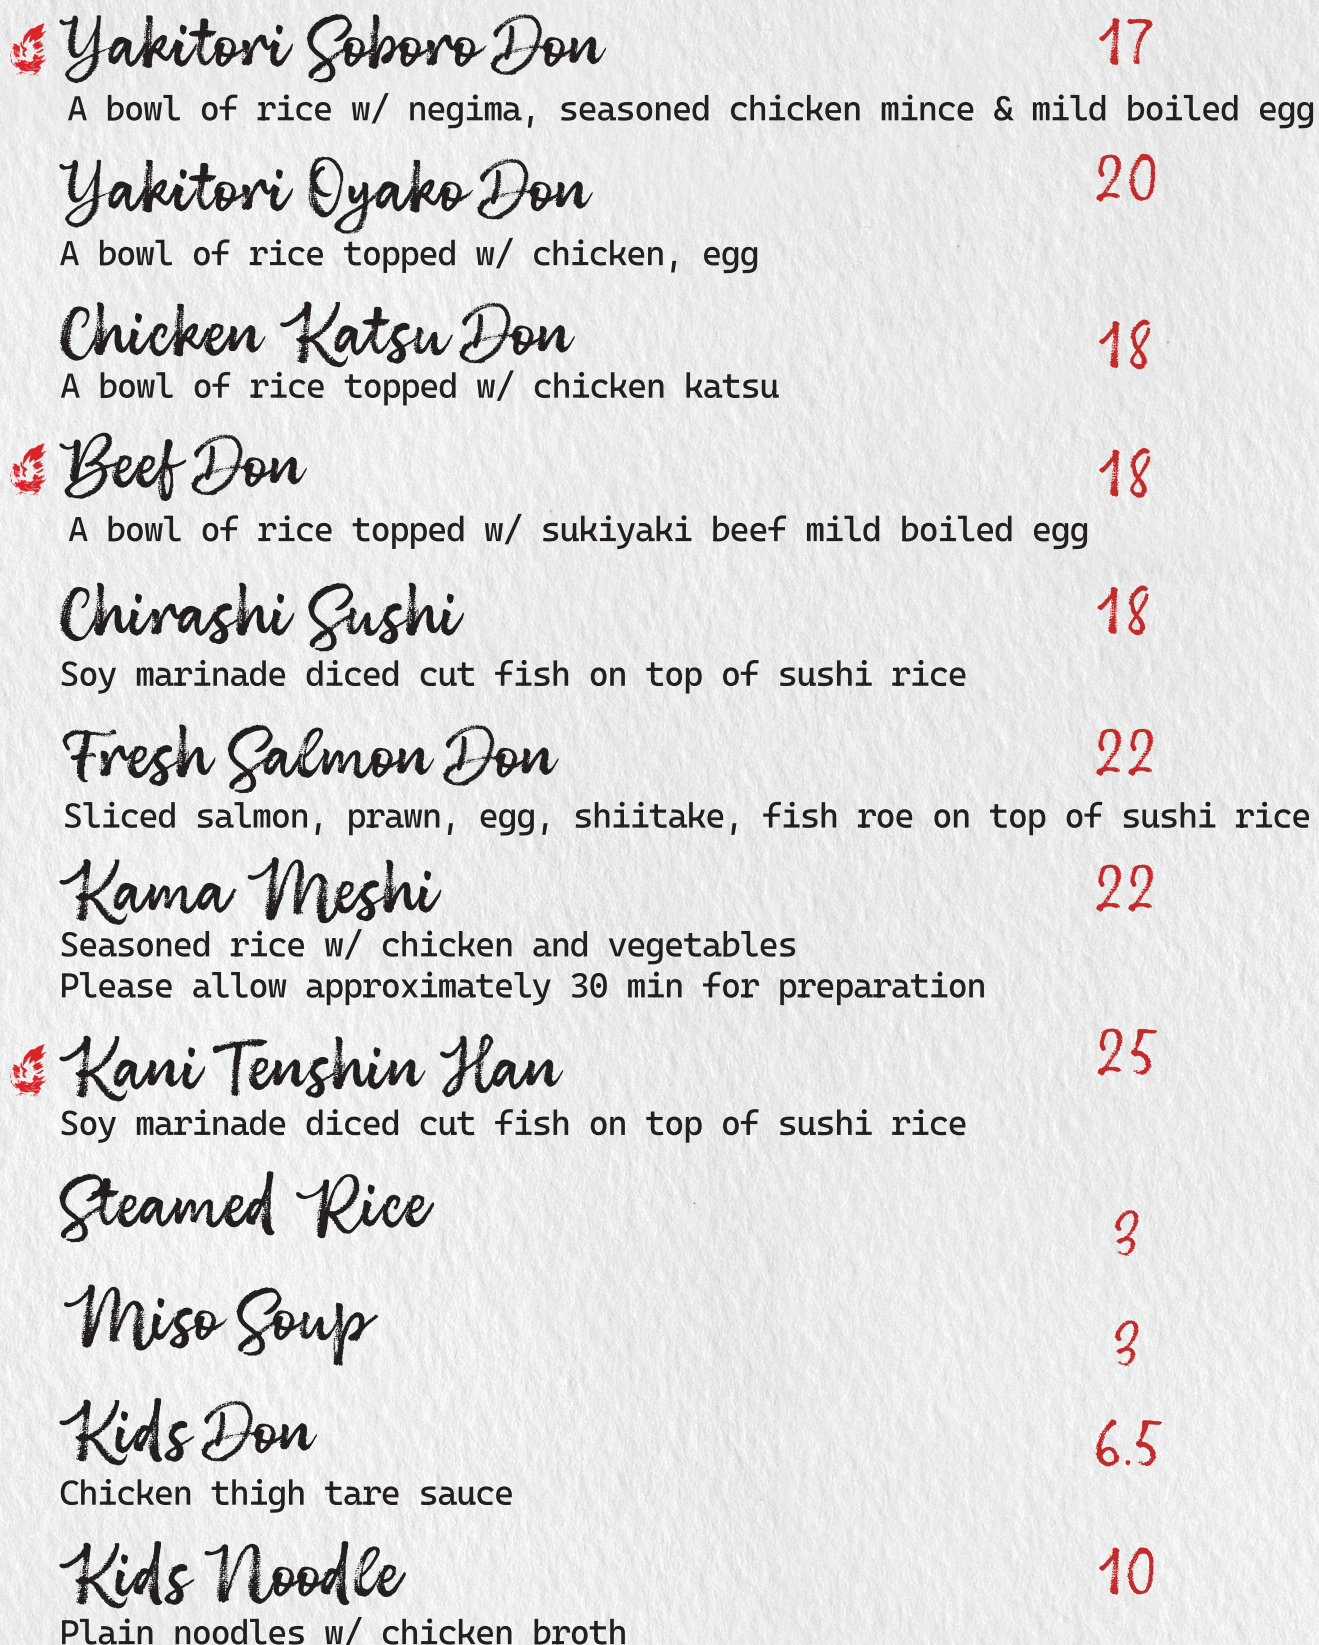 Yakitori Soboro Don 17
A bowl of rice w/ negima, seasoned chicken mince & mild boiled egg
Yakitori Oyako Don 20
A bowl of rice topped w/ chicken, egg
Chicken Katsu Don 18
A bowl of rice topped w/ chicken katsu
Beef Don 18
A bowl of rice topped w/ sukiyaki beef mild boiled egg
Chirashi Sushi 18
Soy marinade diced cut fish on top of sushi rice
Fresh Salmon Don 22
Sliced salmon, prawn, egg, shiitake, fish roe on top of sushi rice
Kama Meshi 22
Seasoned rice w/ chicken and vegetables
Please allow approximately 30 min for preparation
Kani Tenshin Han 25
Soy marinade diced cut fish on top of sushi rice
Steamed Rice 3
Miso Soup 3
Kids Don 6.5
Chicken thigh tare sauce
Kids Noodle 10
Plain noodles w/ chicken broth